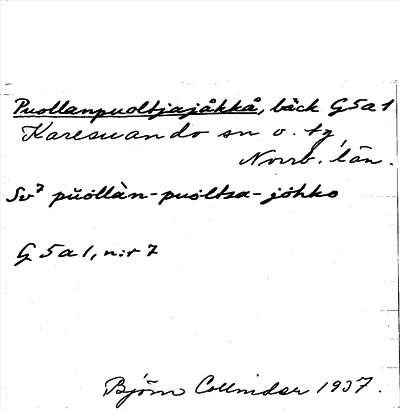 Puollanpuoltjajåkkå, bäck G5a1
Karesuando sn o. tg,
Norrb. län.
Sv² pŭollàn-puoltsa-jåhko
G 5 a 1, n:r 7
Björn Collinder 1937.